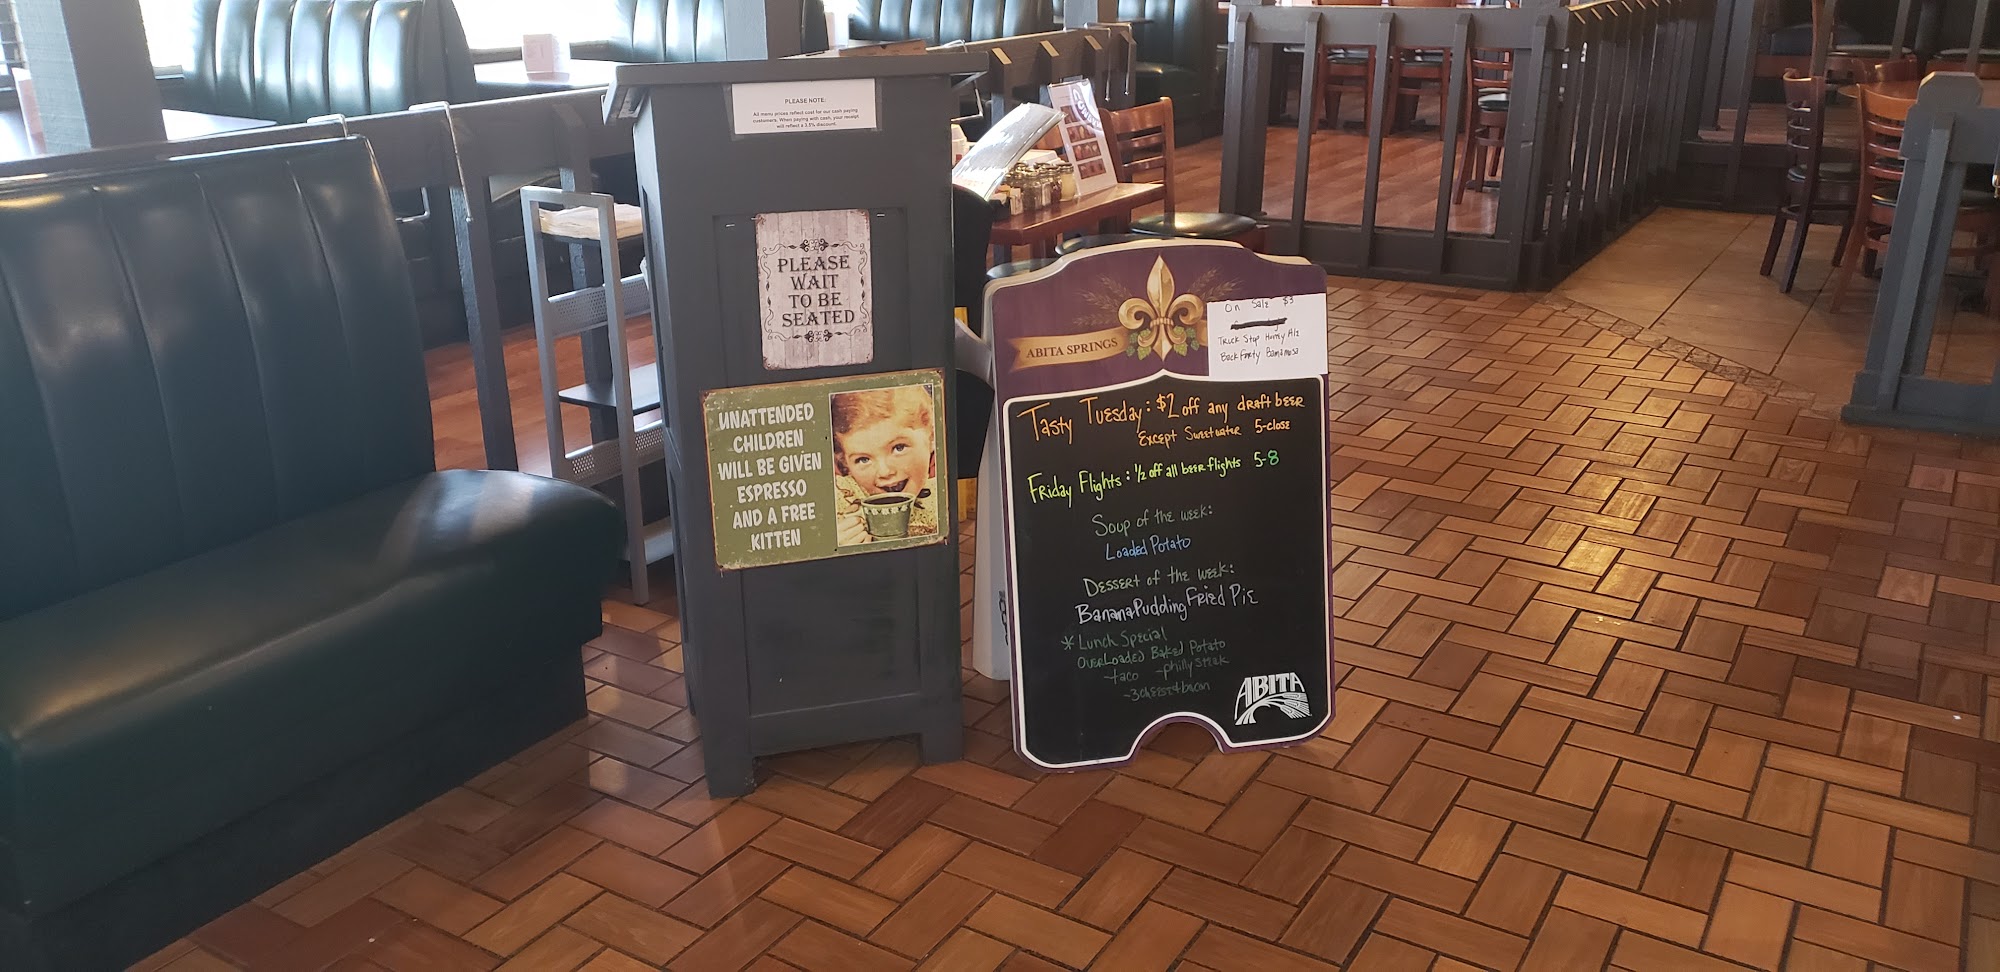 PLEASE NOTE:
All menu prices reflect cost for our cash paying
customers. When paying with cash, your receipt
will reflect a 3.5% discount.
PLEASE
WAIT
TO BE
SEATED
UNATTENDED
CHILDREN
WILL BE GIVEN
ESPRESSO
AND A FREE
KITTEN
ABITA SPRINGS
On Sale $3
Truck Stop Honey Ale
Back Forty Bamamosa
Tasty Tuesday: $2 off any draft beer
Except Sweetwater 5-close
Friday Flights: 1/2 off all beer flights 5-8
Soup of the week:
Loaded Potato
Dessert of the week:
Banana Pudding Fried Pie
* Lunch Special
OverLoaded Baked Potato
-taco -philly steak
-3 cheese + bacon
ABITA